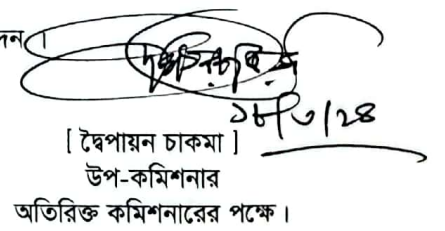 ১৮/৩/২৪
[ দ্বৈপায়ন চাকমা ]
উপ-কমিশনার
অতিরিক্ত কমিশনারের পক্ষে।